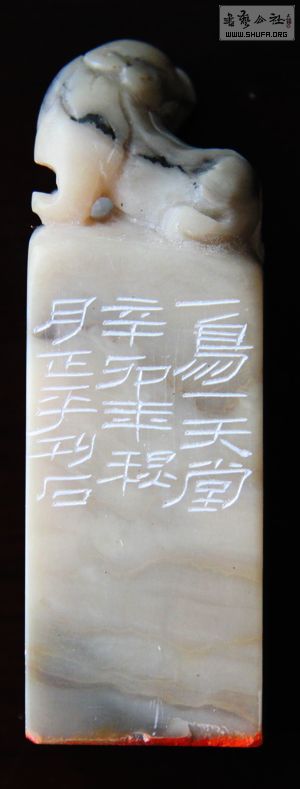 書藝公社
WWW.SHUFA.ORG
一鳥一天堂
辛卯年秋
月正平刊石